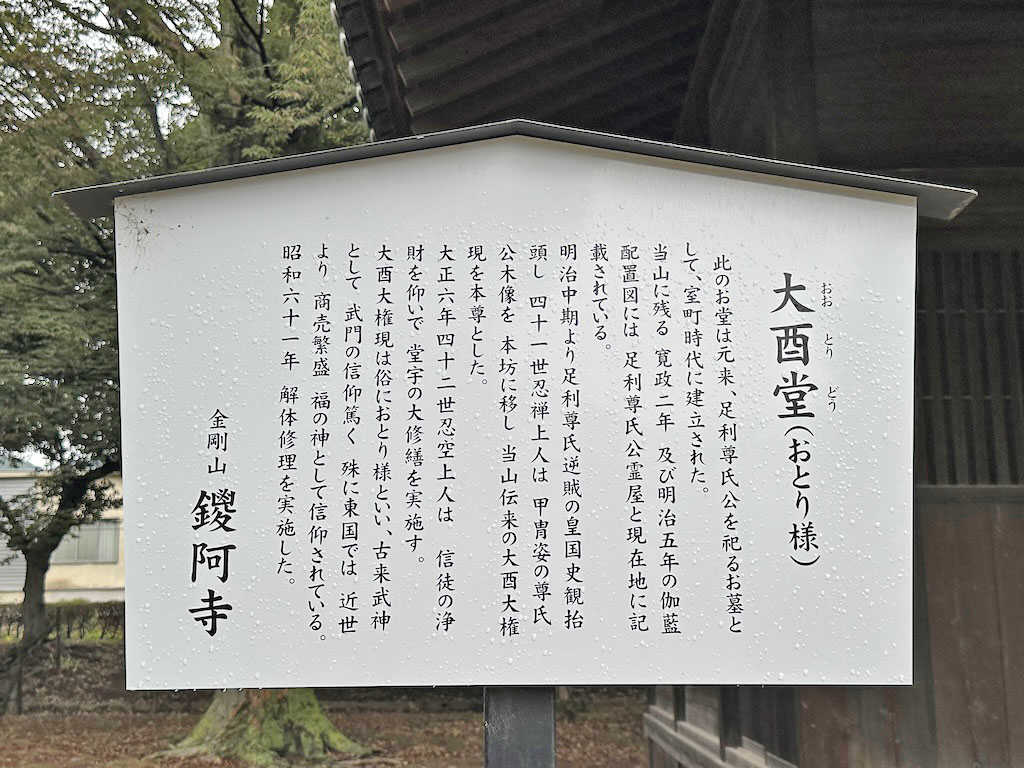 大酉堂(おとり様)
おおとりどう
此のお堂は元来、足利尊氏公を祀るお墓と
して、室町時代に建立された。
当山に残る 寛政二年 及び明治五年の伽藍
配置図には 足利尊氏公霊屋と現在地に記
載されている。
明治中期より足利尊氏逆賊の皇国史観抬
頭し 四十一世忍禅上人は 甲冑姿の尊氏
公木像を 本坊に移し 当山伝来の大酉大権
現を本尊とした。
大正六年四十二世忍空上人は 信徒の浄
財を仰いで 堂宇の大修繕を実施す。
大酉大権現は俗におとり様といい、古来武神
として 武門の信仰篤く 殊に東国では 近世
より 商売繁盛 福の神として信仰されている。
昭和六十一年 解体修理を実施した。
金剛山 鑁阿寺